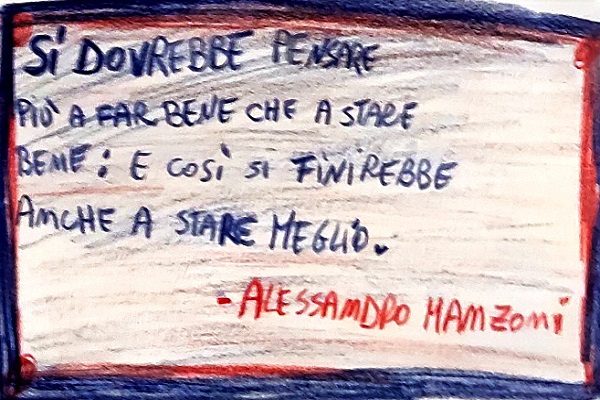 Si DOVREBBE PENSARE
PIÙ A FAR BENE CHE A STARE
BENE: E COSÌ SI FINIREBBE
ANCHE A STARE MEGLIO.
- ALESSANDRO MANZONI